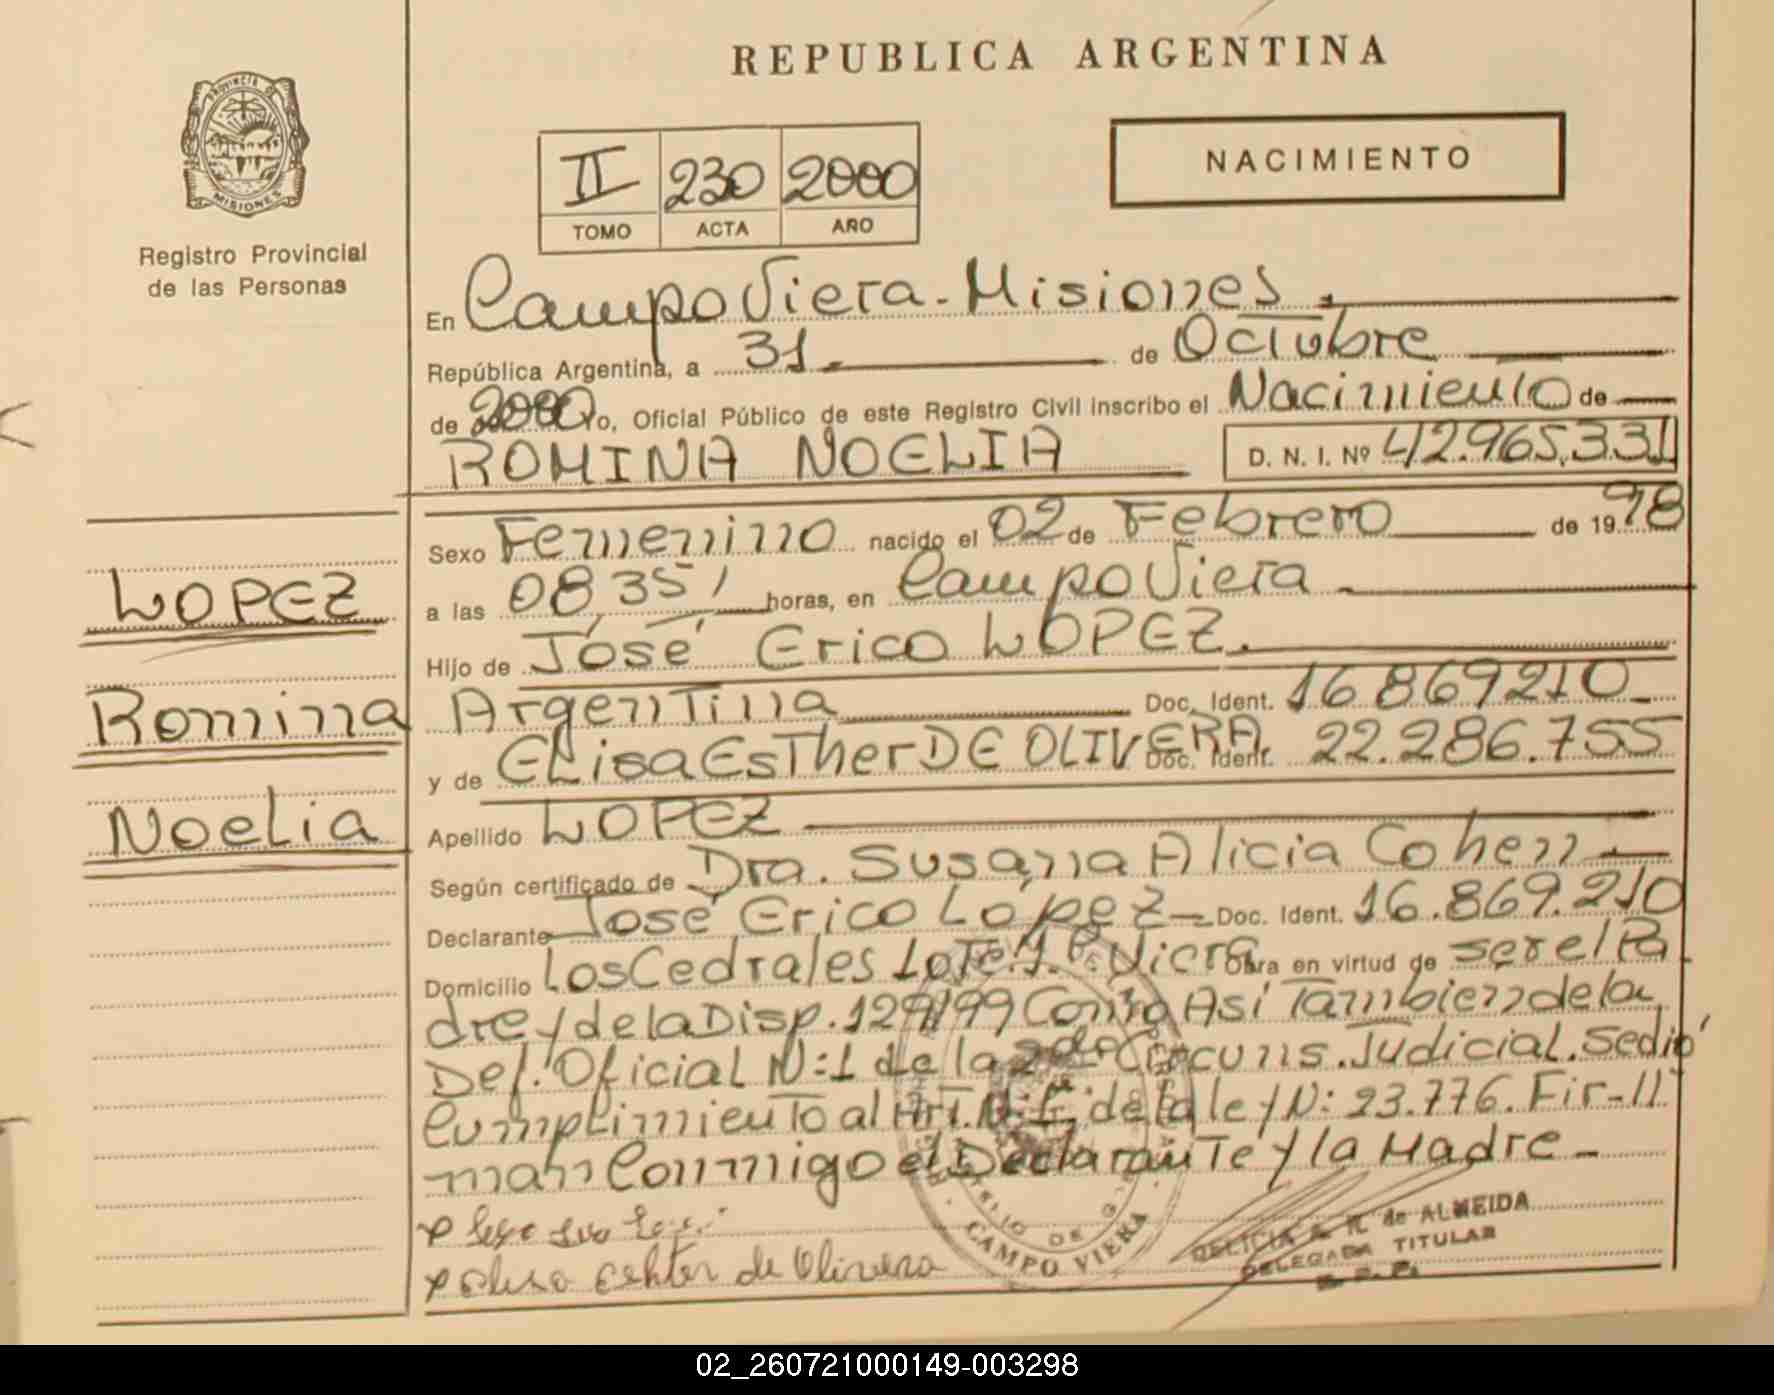 REPUBLICA ARGENTINA
PROVINCIA DE
MISIONES
Registro Provincial
de las Personas
II 230 2000
TOMO ACTA AÑO
NACIMIENTO
En Campo Viera - Misiones.
República Argentina, a 31 de Octubre
de 2000 Yo, Oficial Público de este Registro Civil inscribo el Nacimiento de
ROMINA NOELIA D. N. I. Nº 42.965.331
Sexo Femenino nacido el 02 de Febrero de 1998
a las 08,35, horas, en Campo Viera
Hijo de José Erico LOPEZ.
Argentina Doc. Ident. 16 869210
y de ELisa EsTher DE OLIVERA Doc. Ident. 22.286.755
Apellido LOPEZ
Según certificado de Dra. Susana Alicia Cohen
Declarante José Erico López Doc. Ident. 16.869.210
Domicilio Los Cedrales Lote 1. C. Viera Obra en virtud de ser el Pa
dre y de la Disp. 129/99 Como Asi Tambien de la
Def. Oficial N:1 de la 2da Circuns. Judicial. Se dió
Cumplimiento al Art. N: de la ley N: 23.776. Fir-
man Conmigo el Declarante y la Madre -
x
x Elisa Eshter de Olivera
CAMPO VIERA
de ALMEIDA
DELEGADA TITULAR
R. P. P.
LOPEZ
Romina
Noelia
02_260721000149-003298